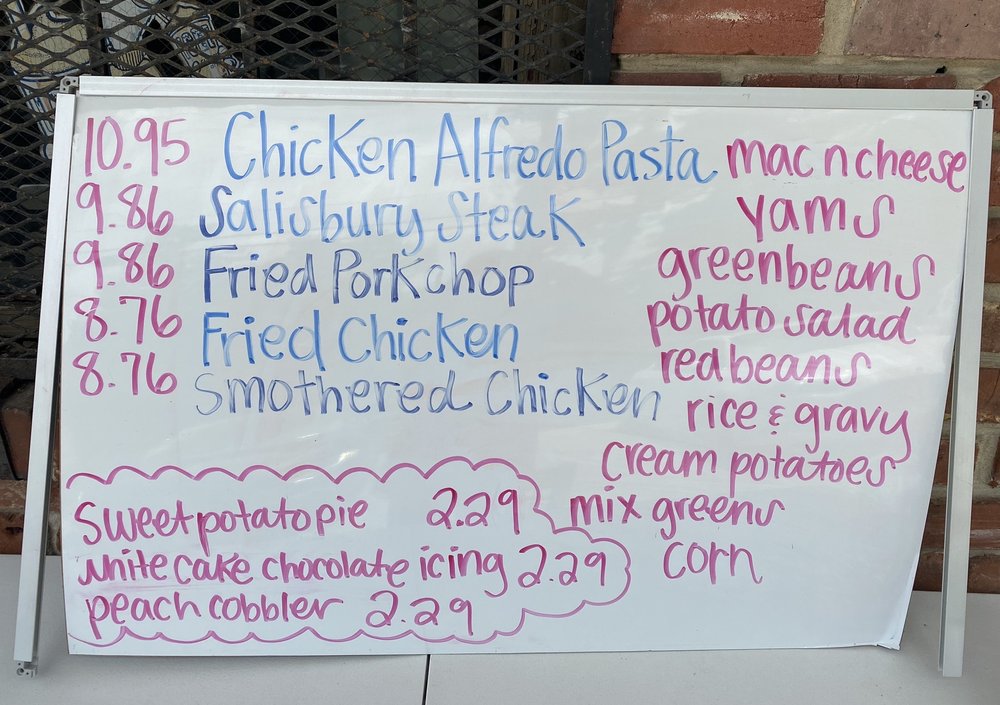 10.95 Chicken Alfredo Pasta
9.86 Salisbury Steak
9.86 Fried Porkchop
8.76 Fried Chicken
8.76 Smothered Chicken
mac n cheese
yams
greenbeans
potato salad
red beans
rice & gravy
cream potatoes
mix greens
corn
Sweet potato pie 2.29
white cake chocolate icing 2.29
peach cobbler 2.29